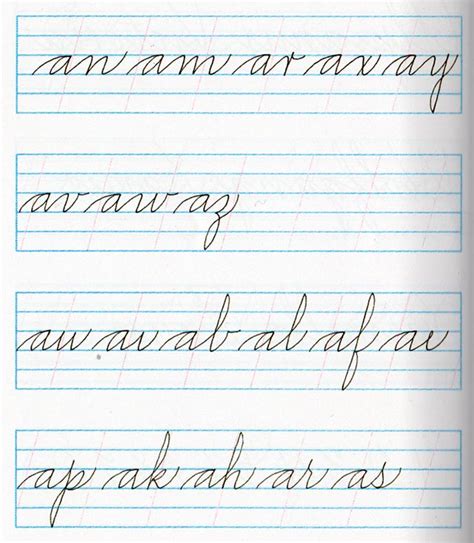 an am ar ax ay
av aw az
au ab al af ae
ap ak ah ar as